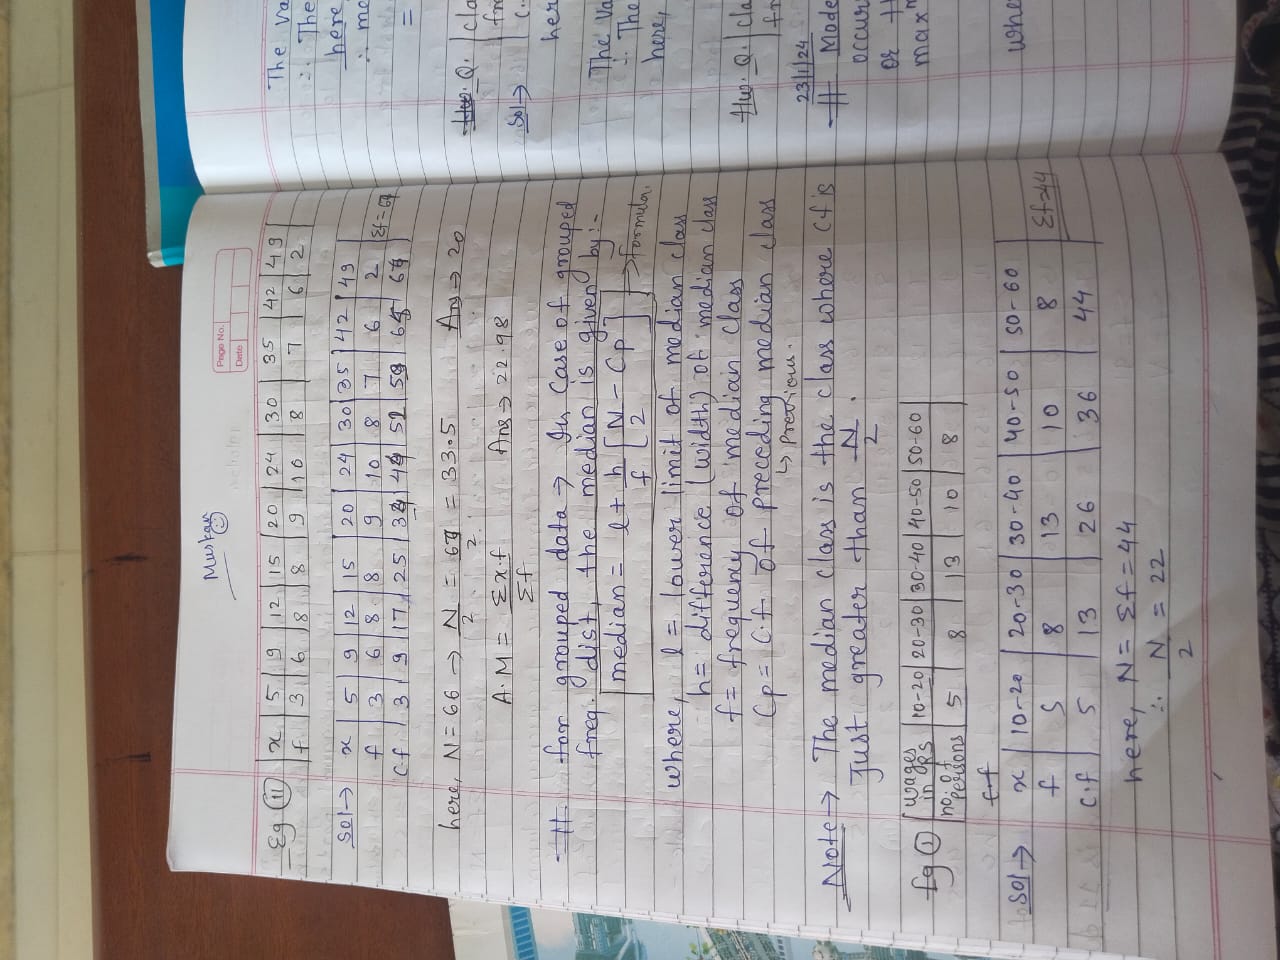 Muskan
Page No.
Date
Eg (11) x | 5 | 9 | 12 | 15 | 20 | 24 | 30 | 35 | 42 | 49
f | 3 | 6 | 8 | 8 | 9 | 10 | 8 | 7 | 6 | 2
Sol → x | 5 | 9 | 12 | 15 | 20 | 24 | 30 | 35 | 42 | 49
f | 3 | 6 | 8 | 8 | 9 | 10 | 8 | 7 | 6 | 2 Σf = 67
Cf | 3 | 9 | 17 | 25 | 34
here, N = 66 → N/2 = 67/2 = 33.5 Ans → 20
A.M = Σx.f/Σf Ans → 22.98
# for grouped data → In Case of grouped
freq. dist, the median is given by :-
median = l + h/f [N/2 - Cp] → formula.
where, l = lower limit of median class
h = difference (width) of median class
f = frequency of median class
Cp = C.f of preceding median class
↳ Previous.
Note → The median class is the class where Cf is
Just greater than N/2.
Eg (1) wages in Rs | 10-20 | 20-30 | 30-40 | 40-50 | 50-60
no. of Persons | 5 | 8 | 13 | 10 | 8
Sol → x | 10-20 | 20-30 | 30-40 | 40-50 | 50-60
f | 5 | 8 | 13 | 10 | 8 | Σf=44
C.f | 5 | 13 | 26 | 36 | 44
here, N = Σf = 44
∴ N/2 = 22
The va
∴ The
here
∴ me
=
Hw. Q. | cla
fr
Sol → | C.
her
The va
∴ The
here,
Hw. Q. | cla
fr
23/1/24
# Mode
occur
or th
max
whe